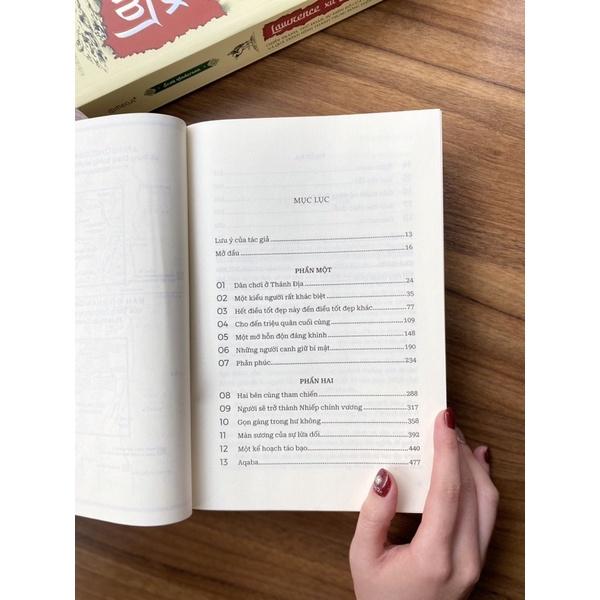 Lawrence xứ
Scott Anderson
omega+
MỤC LỤC
Lưu ý của tác giả 13
Mở đầu 16
PHẦN MỘT
01 Dân chơi ở Thánh Địa 24
02 Một kiểu người rất khác biệt 35
03 Hết điều tốt đẹp này đến điều tốt đẹp khác 77
04 Cho đến triệu quân cuối cùng 109
05 Một mớ hỗn độn đáng khinh 148
06 Những người canh giữ bí mật 190
07 Phản phúc 234
PHẦN HAI
08 Hai bên cùng tham chiến 288
09 Người sẽ trở thành Nhiếp chính vương 317
10 Gọn gàng trong hư không 358
11 Màn sương của sự lừa dối 392
12 Một kế hoạch táo bạo 440
13 Aqaba 477